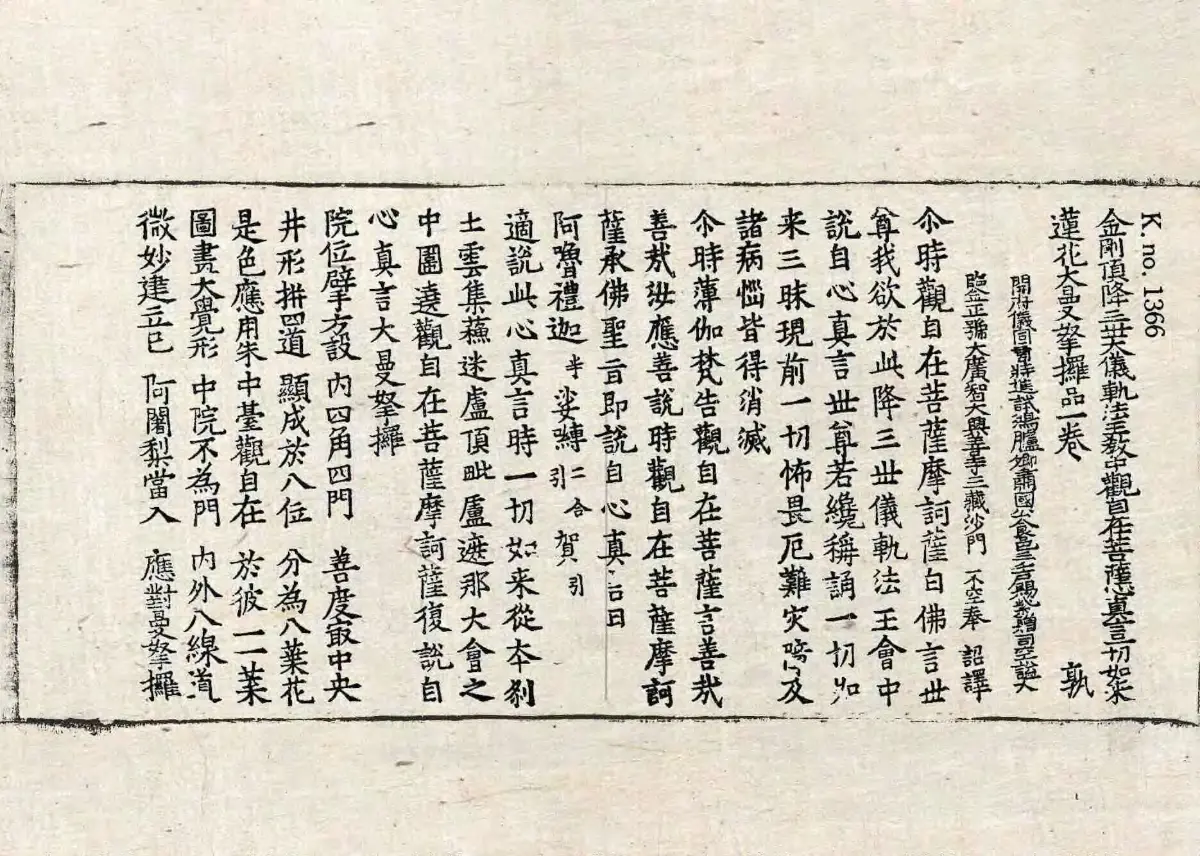 K. no. 1366
金剛頂降三世大儀軌法王教中觀自在菩薩心真言一切如来
蓮花大曼拏攞品一卷 孰
開府儀同三司特進試鴻臚卿肅國公食邑三千户賜紫贈司空謚大
鑒正號大廣智大興善寺三藏沙門 不空奉 詔譯
尒時觀自在菩薩摩訶薩白佛言世
尊我欲於此降三世儀軌法王會中
說自心真言世尊若纔稱誦一切如
来三昧現前一切怖畏厄難灾及
諸病惱皆得消滅
尒時薄伽梵告觀自在菩薩言善哉
善哉汝應善說時觀自在菩薩摩訶
薩承佛聖旨即說自心真言曰
阿嚕禮迦半娑嚩二合引賀引
適說此心真言時一切如来從本刹
土雲集蘓迷盧頂毗盧遮那大會之
中圍遶觀自在菩薩摩訶薩復說自
心真言大曼拏攞
院位擘方設 内四角四門 善度㝡中央
井形拼四道 顯成於八位 分為八葉花
是色應用朱 中臺觀自在 於彼一一葉
圖畫大覺形 中院不為門 内外八線道
微妙建立已 阿闍梨當入 應對曼拏攞